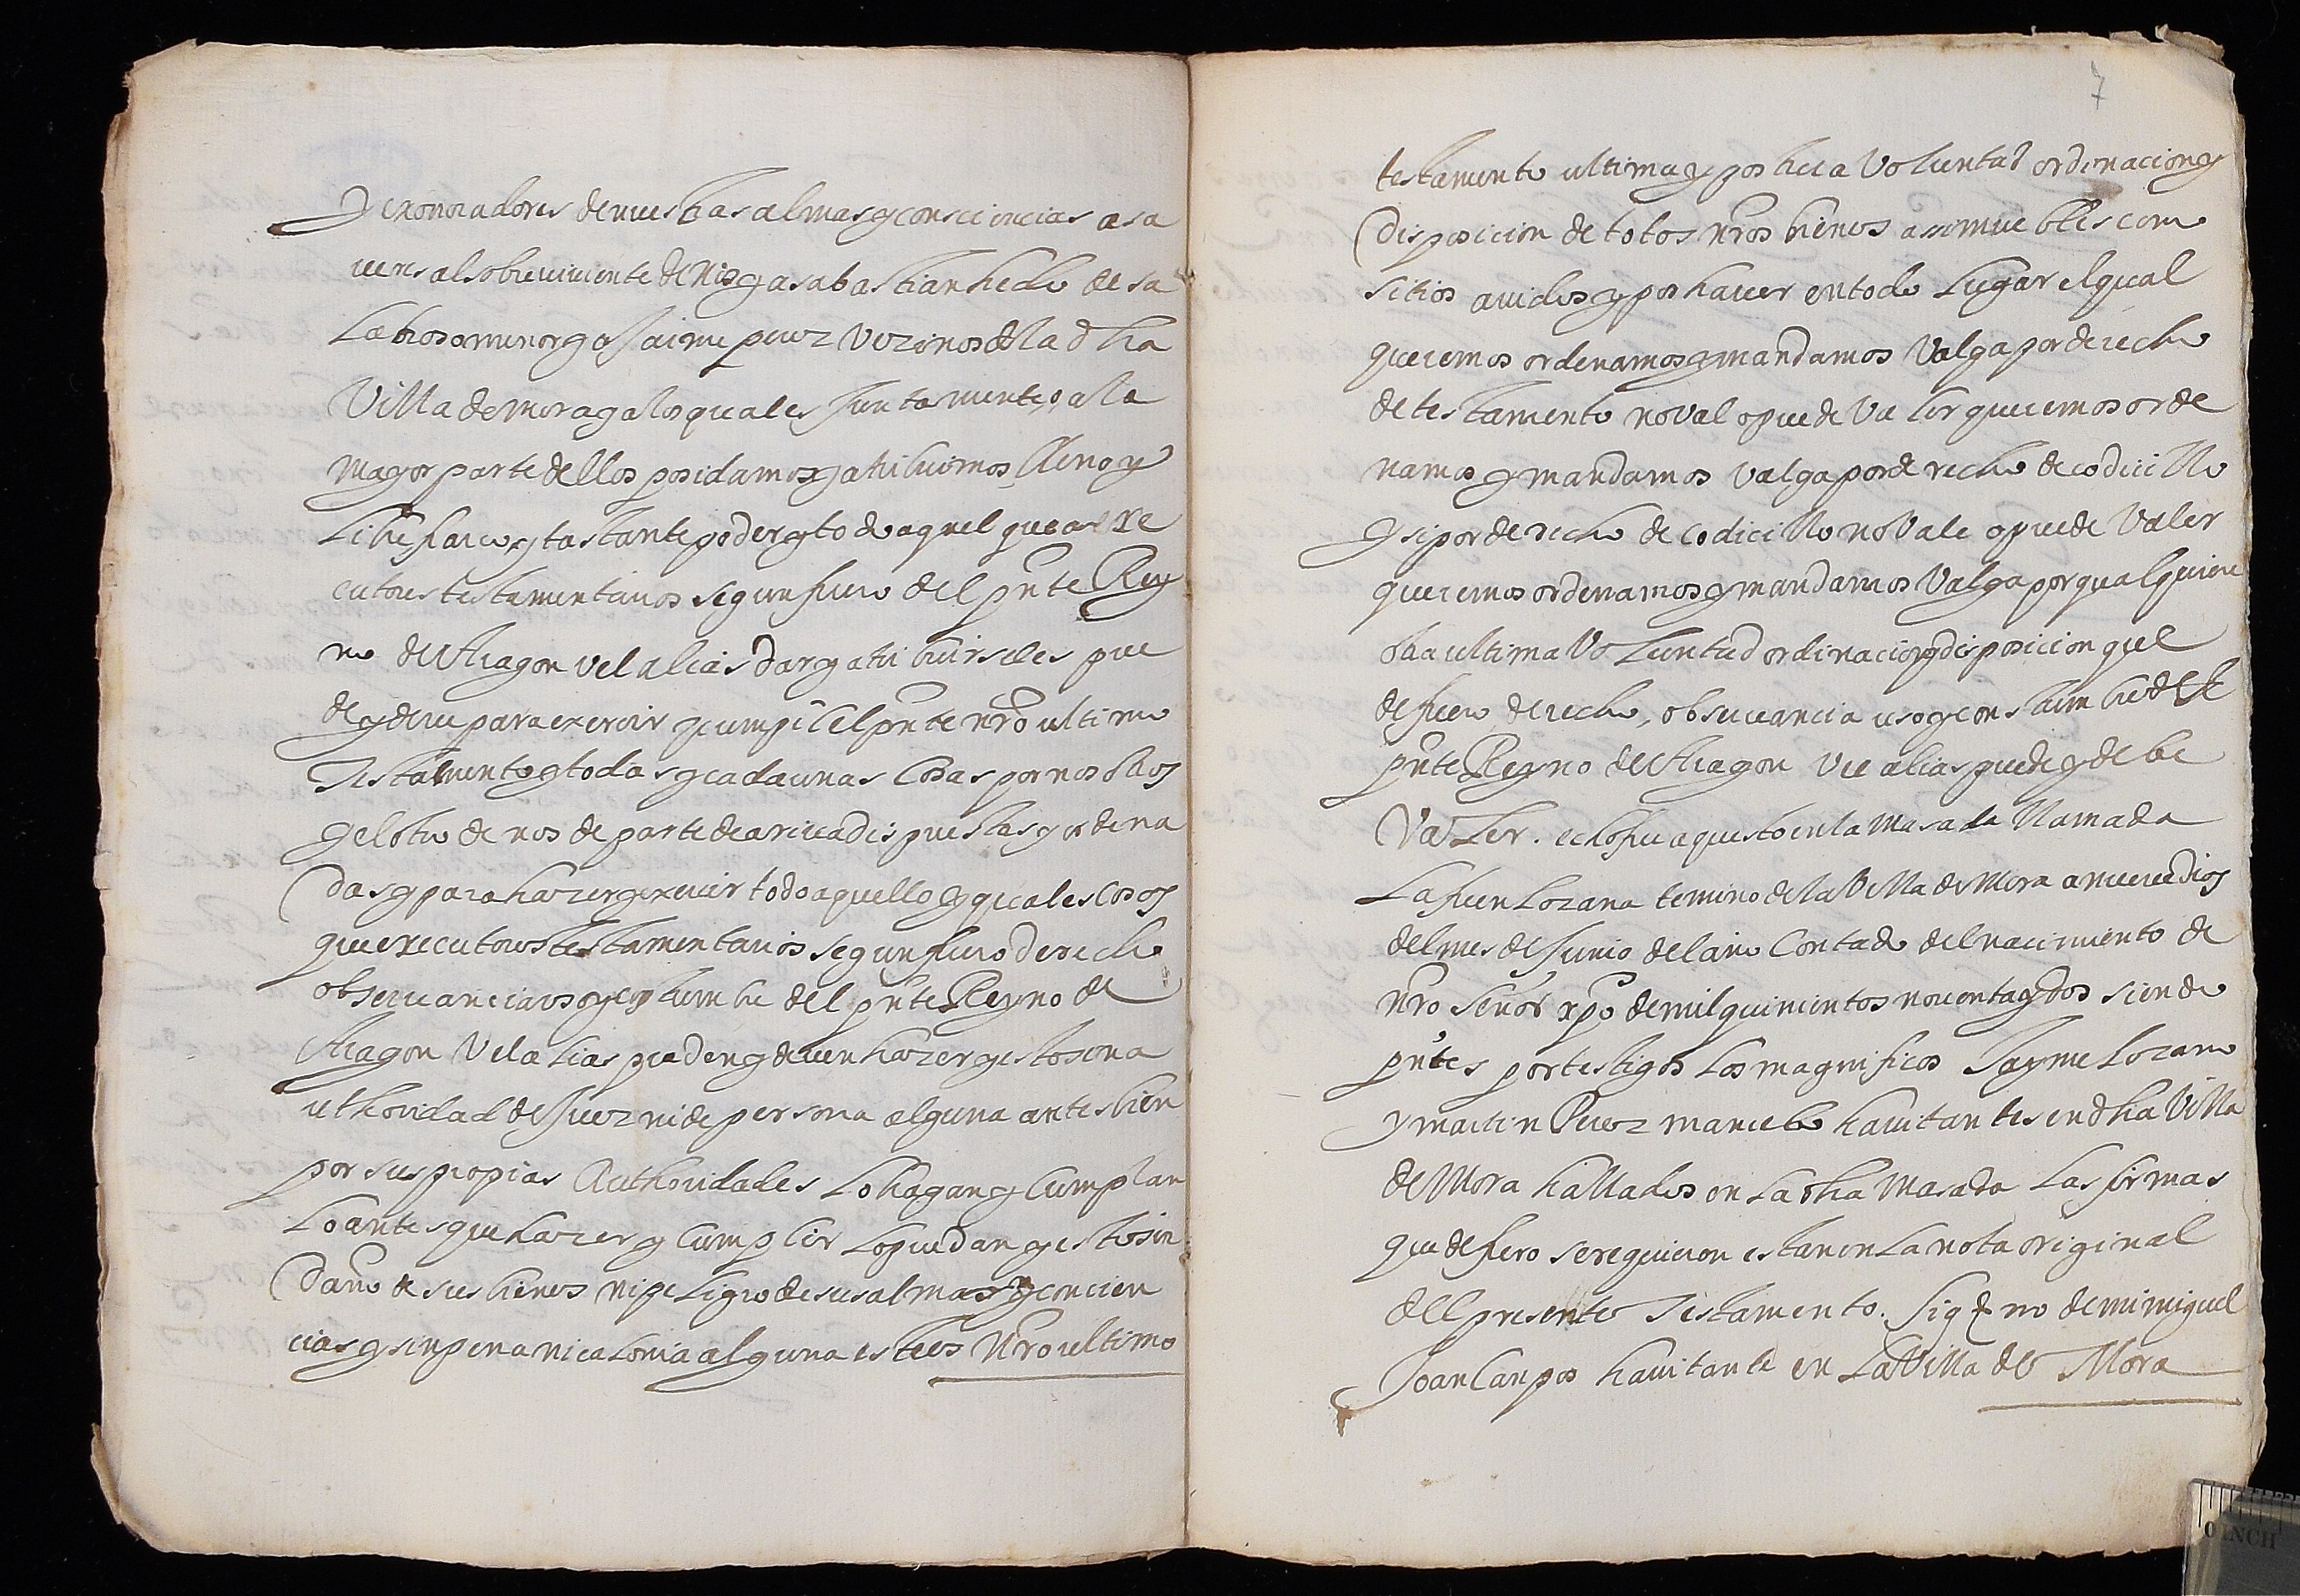 y exoneradores de nuestras almas y consciencias a sa
uer es al sobreuiuiente de Nos y a sabastian hedo de sa
labrosa menor y a Jaime perez Vezinos de la dha
Villa de mora ya los quales Juntamente, o a la
mayor parte dellos posidamos y atribuimos lleno y
libre franco y bastante poder y todo aquel que a exe
cutores testamentarios segun fuero del pnte Rey
no de Aragon vel alias dar y atribuirseles pue
de y deue para exercir y cumplir el pnte nro ultimo
Testamento y todas y cada unas Cosas por nosotros
y el otro de nos de parte de arriua dispuestas y ordena
das y para hazer y exercir todo aquello y quales cosas
que executores testamentarios segun fuero derecho
obseruancia uso y costumbre del pnte Reyno de
Aragon Vel alias pueden y deuen hazer y esto sin a
uthoridad de Juez ni de persona alguna antes bien
por sus propias Authoridades lo hagan y Cumplan
lo antes que hazer y Cumplir lo puedan y esto sin
Daño de sus bienes ni peligro de sus almas y concien
cias y sin pena ni calonia alguna este es Nro ultimo
7
testamento ultima y postrera Voluntad ordinacion y
Disposicion de totos nros bienes assi muebles como
sitios auidos y por hauer en todo Lugar el qual
queremos ordenamos y mandamos Valga por derecho
de testamento no Val o puede Valer queremos orde
namos y mandamos Valga por derecho de codicillo
y si por derecho de Codicillo no Vale o puede Valer
queremos ordenamos y mandamos Valga por qualquiere
otra ultima Voluntad ordinacion y disposicion que
de fuero derecho, obseruancia uso y constumbre deste
pnte Reyno de Aragon Vel alias puede y debe
Valer. echo fue aquesto en la Masada llamada
La fuen Lozana termino de la Villa de Mora a nueue dias
del mes de Junio del año Contado del nacimiento de
nro Señor xpo de mil quinientos nouenta y dos siendo
pntes por testigos Los magnificos Jayme Lozano
y martin Perez mancebo hauitantes en dha Villa
de Mora hallados en La dha Masada Las firmas
que de fuero se requieren estan en La nota original
del presente Testamento. Sig no de mi miguel
Joan Canpos hauitante en La Villa de Mora
0 INCH